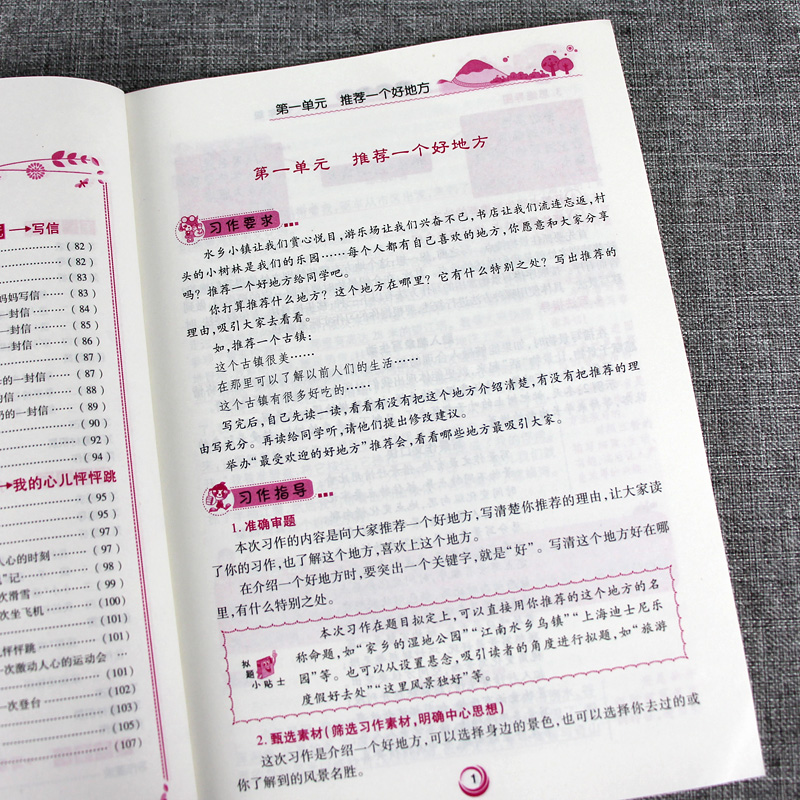 →写信
(82)
(82)
(83)
妈妈写信 (83)
一封信 (84)
一封信 (85)
一封信 (86)
(87)
的一封信 (87)
信 (88)
的一封信 (89)
(90)
(92)
(94)
→我的心儿怦怦跳
(95)
(95)
(97)
人心的时刻 (97)
”记 (98)
次滑雪 (99)
次坐飞机 (100)
(101)
儿怦怦跳 (101)
一次激动人心的运动会
(101)
一次登台 (102)
(103)
(105)
(107)
第一单元 推荐一个好地方
第一单元 推荐一个好地方
习作要求
水乡小镇让我们赏心悦目,游乐场让我们兴奋不已,书店让我们流连忘返,村
头的小树林是我们的乐园……每个人都有自己喜欢的地方,你愿意和大家分享
吗?推荐一个好地方给同学吧。
你打算推荐什么地方?这个地方在哪里?它有什么特别之处?写出推荐的
理由,吸引大家去看看。
如,推荐一个古镇:
这个古镇很美……
在那里可以了解以前人们的生活……
这个古镇有很多好吃的……
写完后,自己先读一读,看看有没有把这个地方介绍清楚,有没有把推荐的理
由写充分。再读给同学听,请他们提出修改建议。
举办“最受欢迎的好地方”推荐会,看看哪些地方最吸引大家。
习作指导
1. 准确审题
本次习作的内容是向大家推荐一个好地方,写清楚你推荐的理由,让大家读
了你的习作,也了解这个地方,喜欢上这个地方。
在介绍一个好地方时,要突出一个关键字,就是“好”。写清这个地方好在哪
里,有什么特别之处。
拟题小贴士
本次习作在题目拟定上,可以直接用你推荐的这个地方的名
称命题,如“家乡的湿地公园”“江南水乡乌镇”“上海迪士尼乐
园”等。也可以从设置悬念,吸引读者的角度进行拟题,如“旅游
度假好去处”“这里风景独好”等。
2. 甄选素材(筛选习作素材,明确中心思想)
这次习作是介绍一个好地方,可以选择身边的景色,也可以选择你去过的或
你了解到的风景名胜。
1